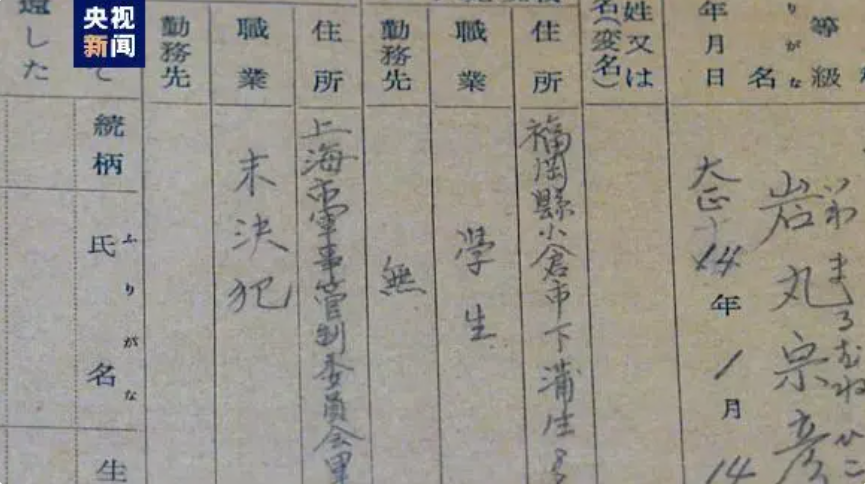 央视
新闻
等級
りがな
名
いわまるむねひこ
岩丸宗彦
年月日
大正14年1月14
姓又は
名(変名)
住所
福岡縣小倉市下蒲生
職業
學生
勤務先
無
住所
上海市軍事管制委員会
職業
未決犯
勤務先
て
還した
続柄
ふりがな
氏名
生